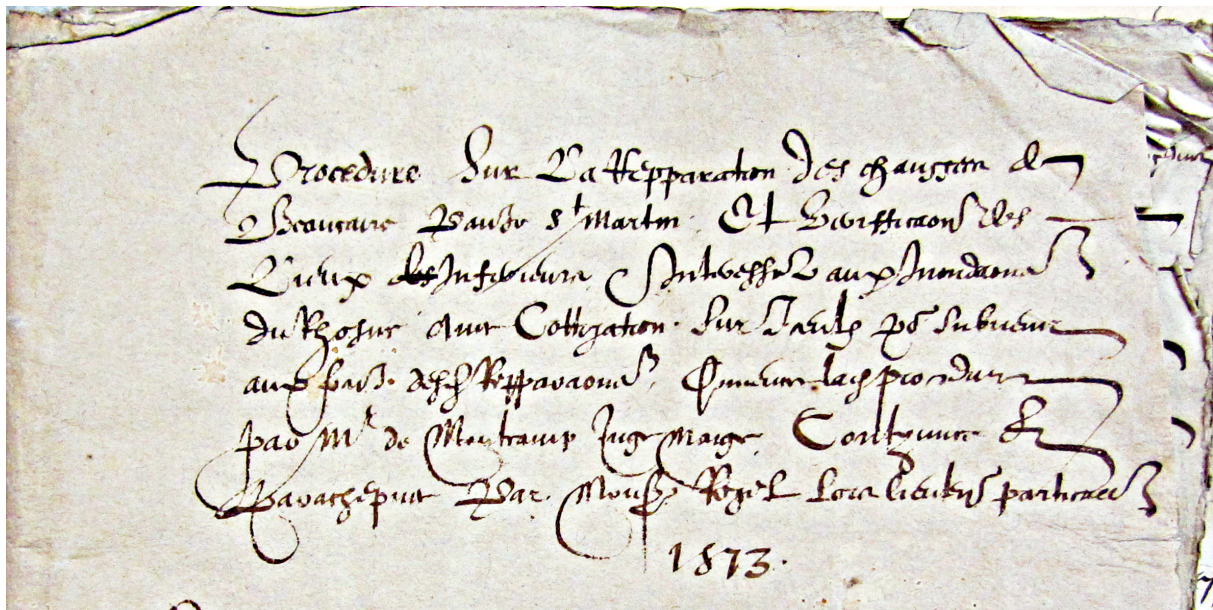 Procedure Sur La Repparation des chaussees de
Beaucaire St Martin Et veriffica(ti)on des
Lieux Inferieurs Interessez aux Inondaons
du Rhosne avec Cottization sur Iceulx po(ur) subvenir
aux fraiz desd Repparaons
par Mr de Montcamp Juge Maige Continuee &
Par Mons Rozel Lors lieuten particulier
1573.